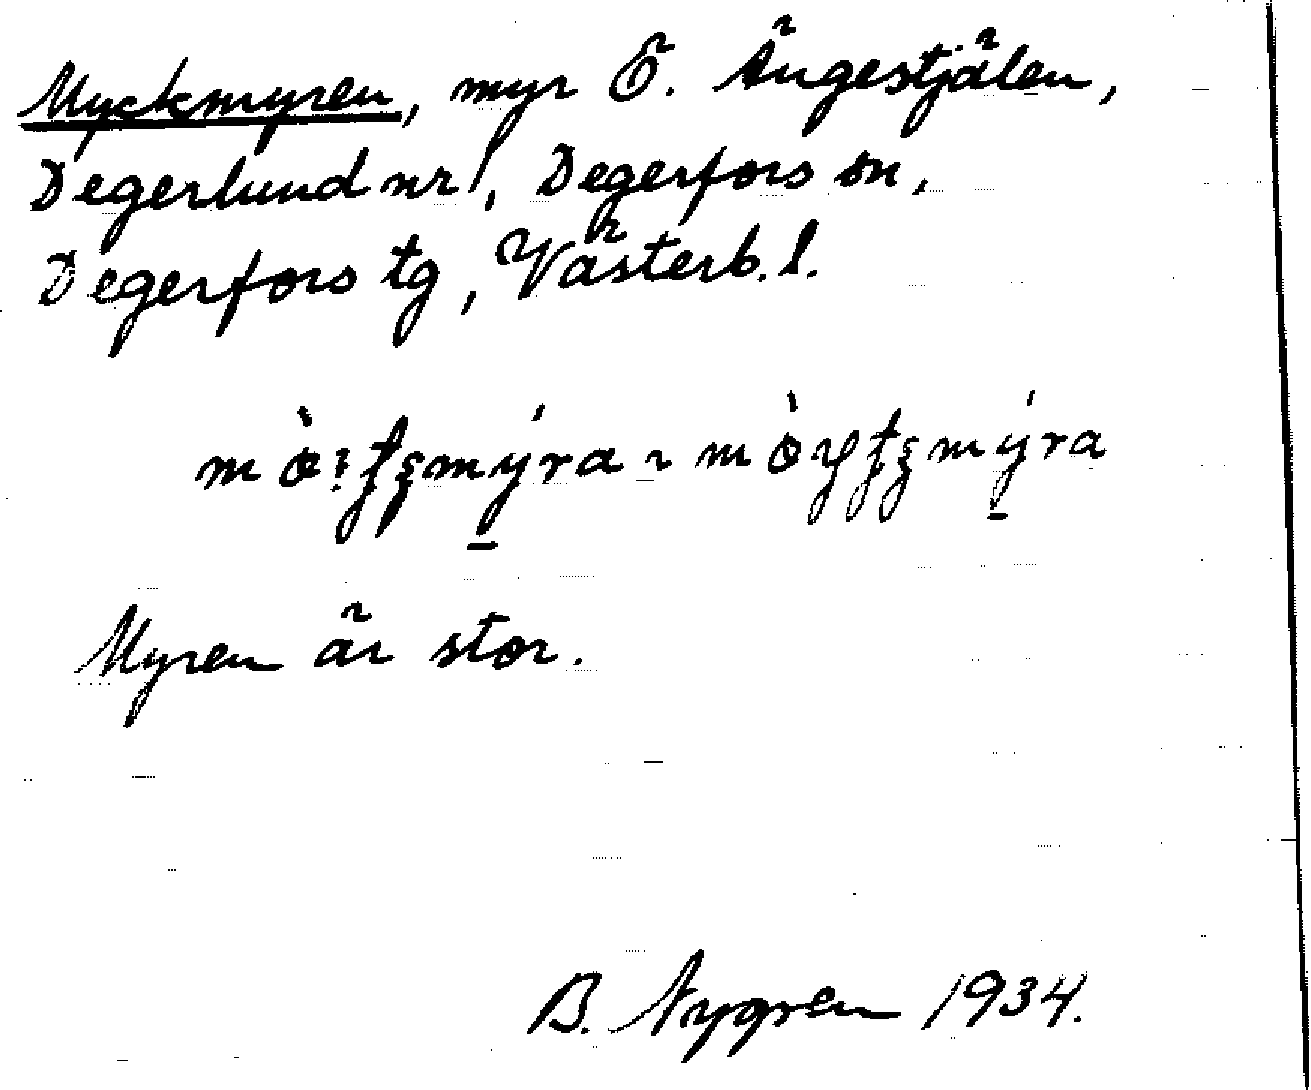 Myckmyren, myr E. Ängestjälen,
Degerlund nr 1, Degerfors sn,
Degerfors tg, Västerb. l.
Myren är stor.
B. Nygren 1934.